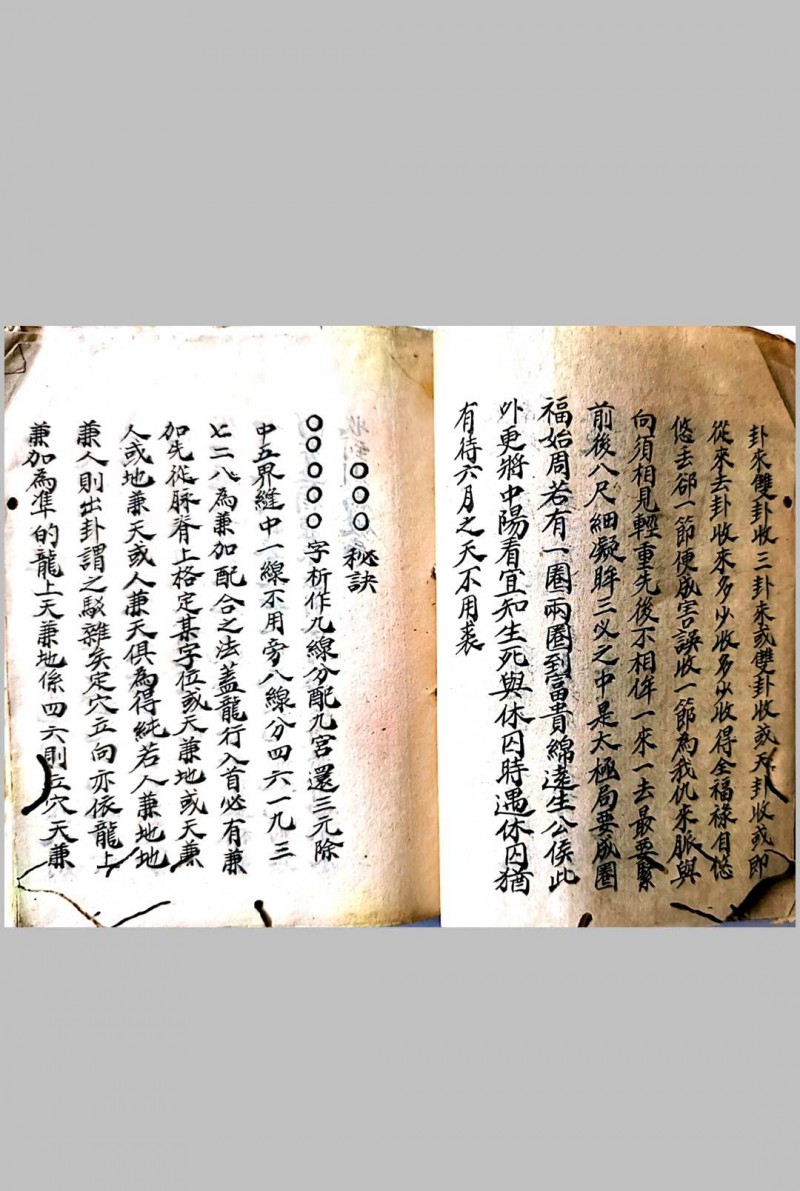 卦來雙卦收三卦來或雙卦收或天卦收或即
從來去卦收來多少收多少收得全福祿自悠
悠丟卻一節便成害誤收一節為我仇來脈與
向須相見輕重先後不相侔一來一去最要緊
前後八尺細凝眸三义之中是太極局要成圈
福始周若有一圈兩圈到富貴綿遠生公侯此
外更將中陽看宜知生死與休囚時遇休囚猶
有待六月之天不用裘
○○○秘訣
○○○○○字析作九線分配九宮還三元除
中五界縫中一線不用旁八線分四六一九三
七二八為兼加配合之法蓋龍行入首必有兼
加先從脉脊上格定某字位或天兼地或天兼
人或地兼天或人兼天俱為得純若人兼地地
兼人則出卦謂之駁雜矣定穴立向亦依龍上
兼加為準的龍上天兼地係四六則立穴天兼